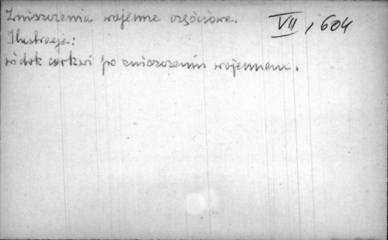 Zniszczenia wojenne częściowe.
VII, 604
Ilustracje:
widok cerkwi po zniszczeniu wojennem.